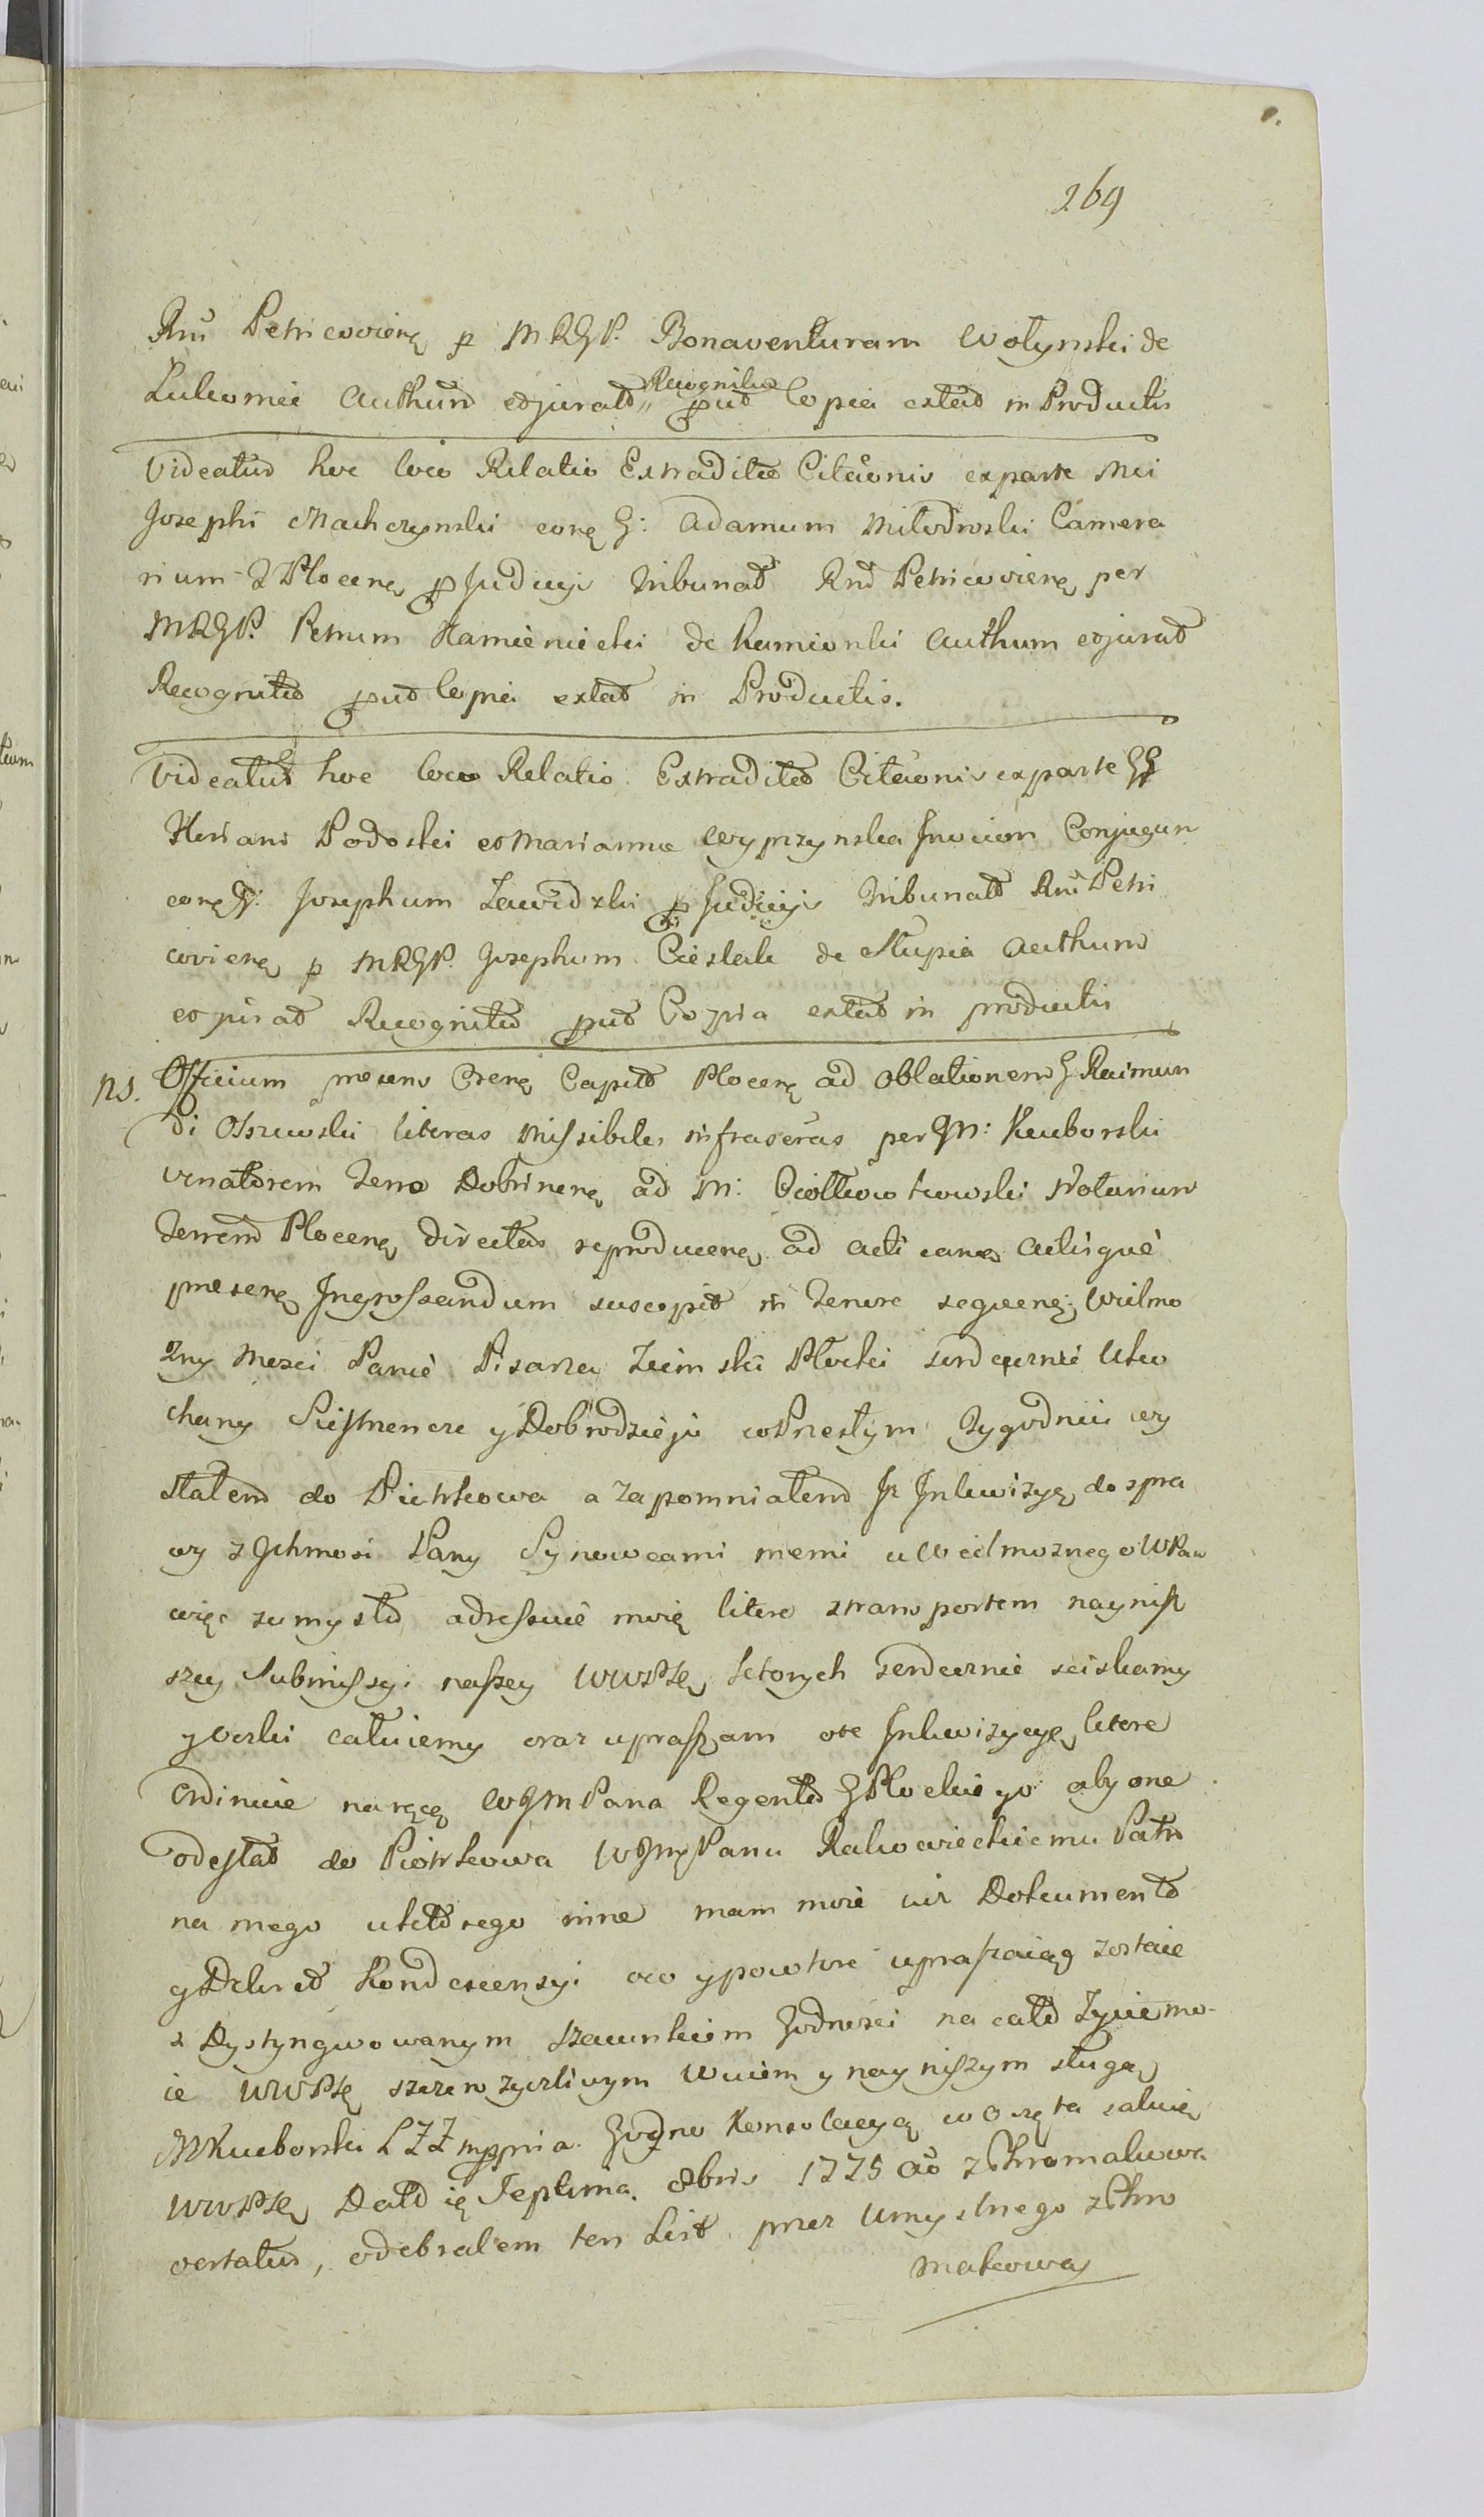 269
Rni Petricovienę p MRGP. Bonaventuram Wolynski de
Lukomie Authum eojurato Recognitus put Copia extat in Productis
Videatur hoc loco Relatio Extraditae Citaonis ex parte Mci
Josephi Machczynski conę G: Adamum Milodroski Camera
rium T Plocenę p Judicijs Tribunat Rnd Petricovienę per
MRGP. Petrum Kamienicki de Kamionki Authum eojurat
Recognita put Copia extat in Productis.
Videatur hoc loco Relatio Extradita Citaonis ex parte GG
Podoski et Marianna Wyprzynska Invicem Conjugum
conę G: Josephum Zawidzki p Judicijs Tribunat Rni Petri
covienę p MRGP. Josephum Cieslak de Slupia Authum
eojurat Recognita put Copia extat in productis
NS. Officium presens Crenę Capit Plocenę ad oblationem G Raimun
di Olszewski literas Missibiles infrascras per GM: Kuborski
Venatorem Terra Dobrinenę ad M: Ciolkowski Notarium
Terrem Plocenę directas reproducenę ad acti canę Actisque
presenę Ingrossandum suscepit in Tenore sequenę; Wielmo
zny Mosci Panie Pisarzu Ziemski Plocki serdecznie Uko
chany Siestrzencze y Dobrodzieju w Przeszlym Tygodniu wy
slalem do Piotrkowa a zapomnialem Inkwizyę do spra
wy z Ichmosi Pany Synowcami memi u Wielmoznego WPaw
więc umyslu adressuie moię litere z transportem nayniz
szey Submissyi naszey WWPStę ktorych serdecznie sciskamy
y caluiemy oraz upraszam ote Inkwizycyę ktore
Ordinuie na ręcę WJMPana Regenta GPlockiego aby one
odeslal do Piotrkowa WJMPanu Rakowieckiemu Patro
na mego u ktorego inne mam moie Dokumenta
y Dekret Kondescensyi oco y powtore upraszaiąc zostaię
z Dystyngwowanym szacunkiem Godnosci na cale Zycie mo-
ie WWPStę szczerze zyczliwym Wuiem y nayniszym slugą
MKuborski LZZ mppria. Godne Konsolacyą w Oczęta caluię
WWPStę Dat ię Septima 8bris 1775 ao z Chromakowa
oertatus, odebralem ten List przez Umyslnego z Chro
makowa